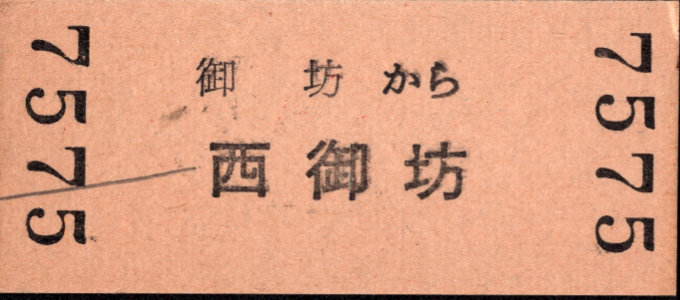 7575
御坊から
西御坊
7575